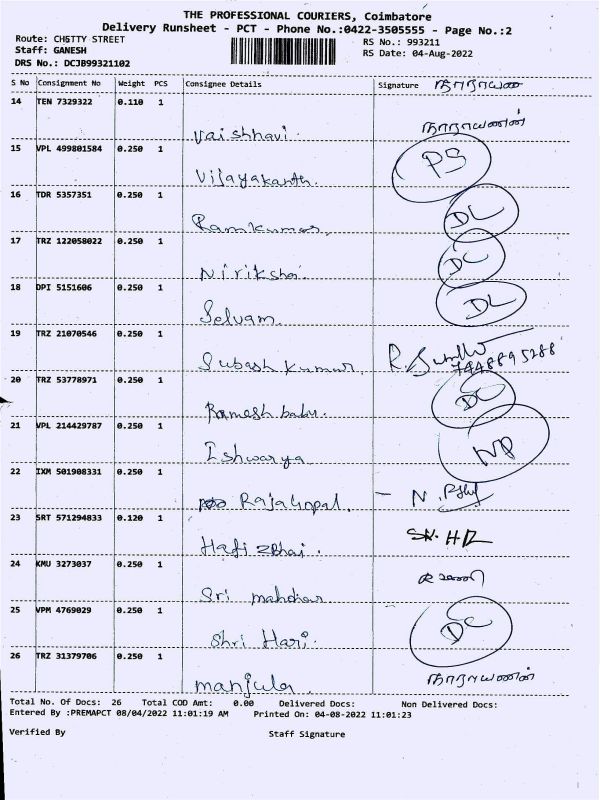 THE PROFESSIONAL COURIERS, Coimbatore
Delivery Runsheet - PCT - Phone No.:0422-3505555 - Page No.:2
Route: CHETTY STREET
RS No.: 993211
Staff: GANESH
RS Date: 04-Aug-2022
DRS No.: DCJB99321102
S No Consignment No Weight PCS Consignee Details Signature நாராயண
14 TEN 7329322 0.110 1 Vaishhavi. நாராயணன்
15 VPL 499801584 0.250 1 Vijayakanth. PS
16 TDR 5357351 0.250 1 Ramkumar. DL
17 TRZ 122058022 0.250 1 Nirikshai. DC
18 DPI 5151606 0.250 1 Selvam. DL
19 TRZ 21070546 0.250 1 Subash kumar. 7448895288
20 TRZ 53778971 0.250 1 Ramesh babu. DC
21 VPL 214429787 0.250 1 Ishwarya NP
22 IXM 501908331 0.250 1 RajaGopal. - N.
23 SRT 571294833 0.120 1 Hafizbhai.
24 KMU 3273037 0.250 1 Sri
25 VPM 4769029 0.250 1 Shri Hari. DC
26 TRZ 31379706 0.250 1 manjula. நாராயணன்
Total No. Of Docs: 26 Total COD Amt: 0.00 Delivered Docs: Non Delivered Docs:
Entered By :PREMAPCT 08/04/2022 11:01:19 AM Printed On: 04-08-2022 11:01:23
Verified By Staff Signature